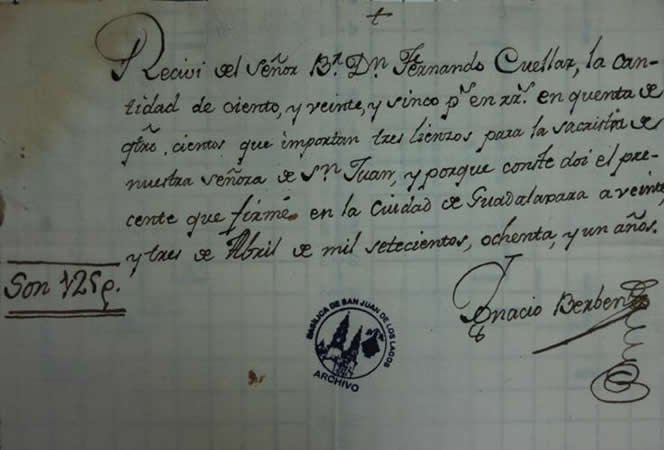 +
Recivi del Señor Br. Dn. Fernando Cuellar, la can-
tidad de ciento, y veinte, y sinco ps. en rrs. en quenta de
qtro. cientos que importan tres lienzos para la sacristia de
nuestra señora de Sn. Juan, y porque conste doi el pre-
cente que firmé en la Ciudad de Guadalaxara a veinte,
y tres de Abril de mil setecientos, ochenta, y un años.
Son 125 p.
Ygnacio Berben
BASILICA DE SAN JUAN DE LOS LAGOS
ARCHIVO